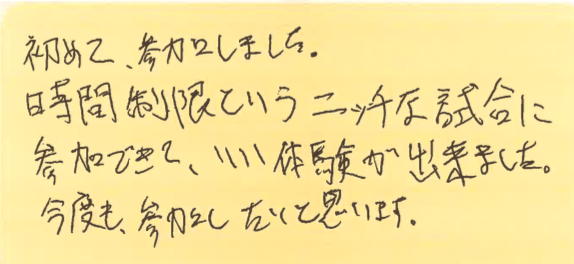 初めて、参加しました。
時間制限というニッチな試合に
参加できて、いい体験が出来ました。
今度も、参加したいと思います。